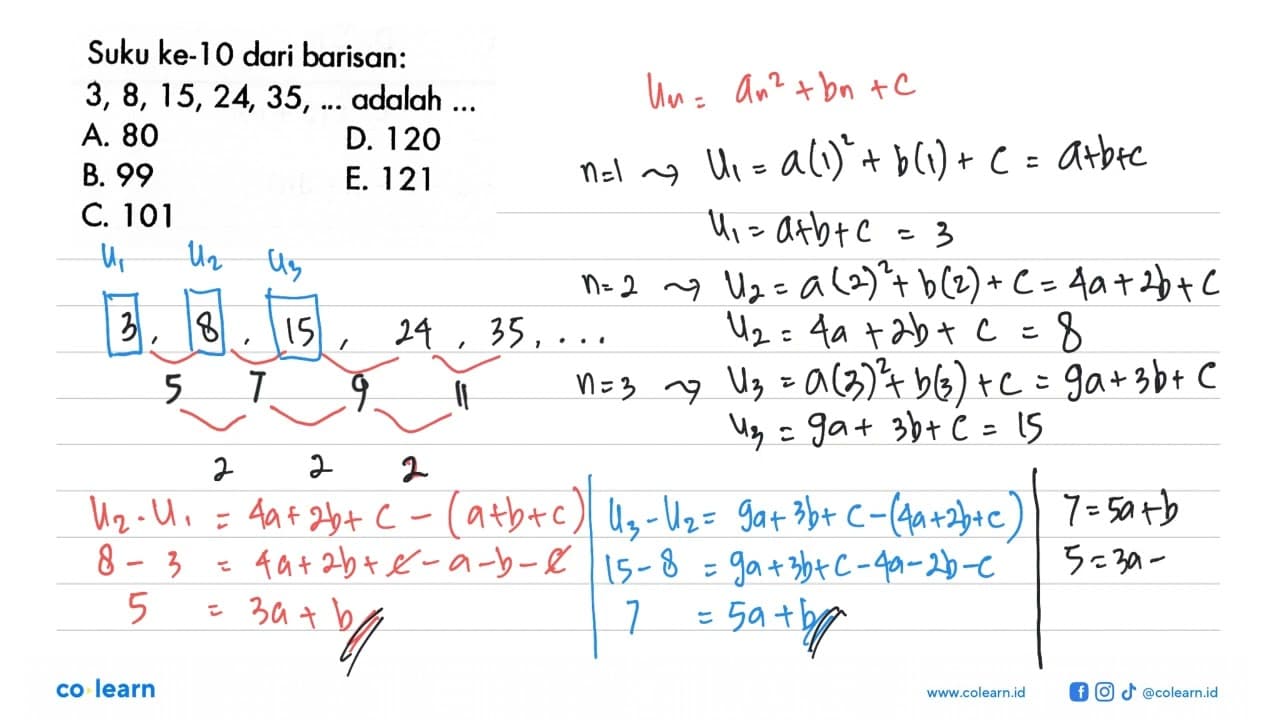 Suku ke-10 dari barisan:
3, 8, 15, 24, 35, ... adalah ...
A. 80 D. 120
B. 99 E. 121
C. 101
Un = an² + bn + c
n=1 → U₁ = a(1)² + b(1) + c = a+b+c
U₁ = a+b+c = 3
n=2 → U₂ = a(2)² + b(2) + c = 4a + 2b + c
U₂ = 4a + 2b + c = 8
n=3 → U₃ = a(3)² + b(3) + c = 9a + 3b + c
U₃ = 9a + 3b + c = 15
U₁ U₂ U₃
3, 8, 15, 24, 35, ...
5 7 9 11
2 2 2
U₂ - U₁ = 4a + 2b + c - (a+b+c)
8 - 3 = 4a + 2b + c - a - b - c
5 = 3a + b
U₃ - U₂ = 9a + 3b + c - (4a+2b+c)
15 - 8 = 9a + 3b + c - 4a - 2b - c
7 = 5a + b
7 = 5a + b
5 = 3a -
co learn
www.colearn.id @colearn.id